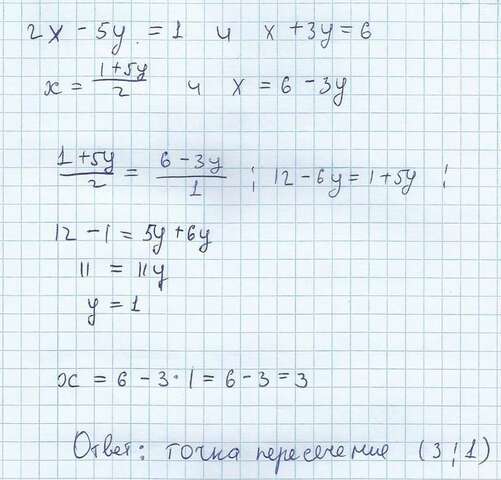 2x - 5y = 1 и x + 3y = 6
x = \frac{1+5y}{2} и x = 6 - 3y
\frac{1+5y}{2} = \frac{6-3y}{1} ; 12 - 6y = 1 + 5y ;
12 - 1 = 5y + 6y
11 = 11y
y = 1
x = 6 - 3 · 1 = 6 - 3 = 3
Ответ: точка пересечение (3 ; 1)